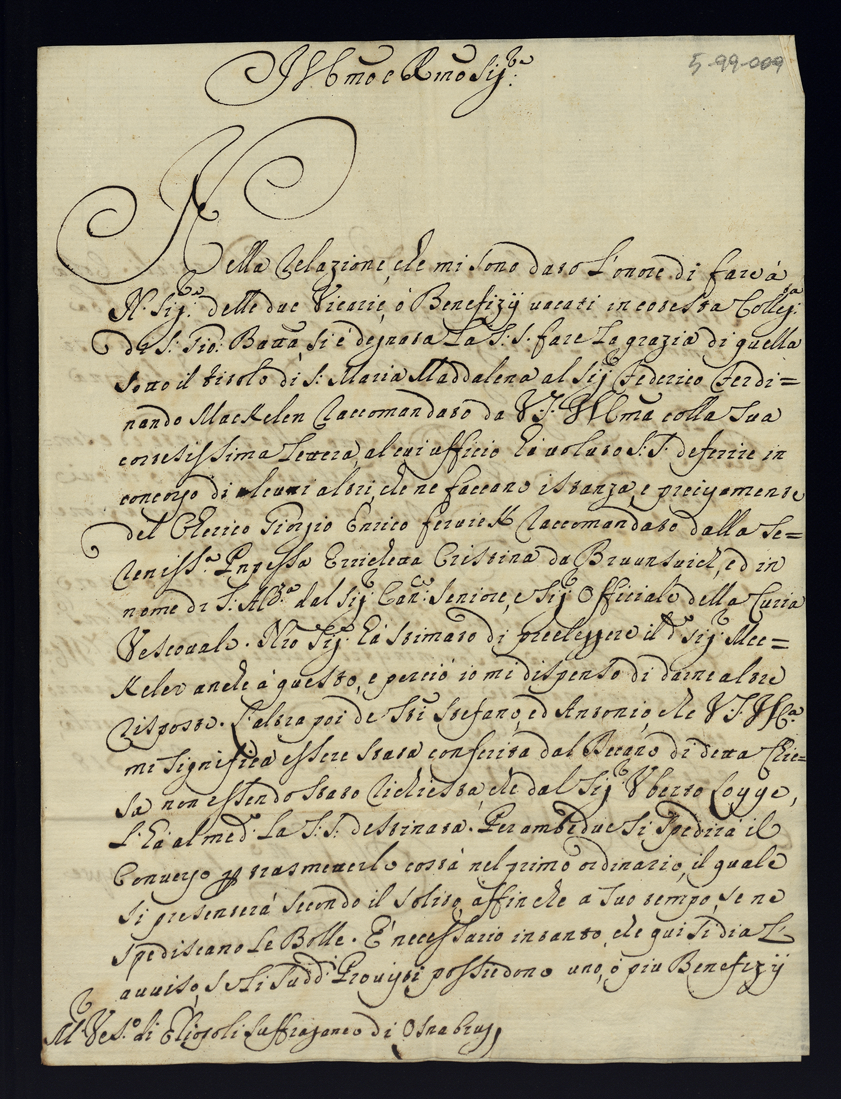 5-99-009
Ill.mo e R.mo Sig.re
Nella Relazione, che mi sono dato l'onore di fare à
N. Sig.re delle due Vicarie, ò Benefizij vacati in cotesta Colleg.ta
di S. Gio: Batta si è degnata La S. S. fare La grazia di quella
sotto il titolo di S. Maria Maddalena al Sig.r Federico Ferdi=
nando Mackelen raccomandato da V. S. Ill.ma colla sua
cortesissima Lettera, al cui ufficio hà voluto S. S. deferire in
concorso di alcuni altri, che ne faceano istanza, e precisamente
del Clerico Giorgio Enrico raccomandato dalla Se=
reniss.a Pnpessa Errichetta Cristina da Brunswich, ed in
nome di S. Alt.a dal Sig.r Can.co Seniore, e Sig.r Officiale della Curia
Vescovale. Nro Sig.re hà stimato di preeleggere il d.o Sig.r Mec=
keler anche à questo, e perciò io mi dispenso di darne altre
risposte. L'altra poi de SSti Stefano, ed Antonio, che V. S. Ill.ma
mi significa essere stata conferita dal Decano di detta Chie=
sa non essendo stato richiesta, che dal Sig.r Uberto Coyge,
L'hà al med.o La S. S. destinata. Per ambidue si spedirà il
Converso p trasmetterlo costà nel primo ordinario, il quale
si presenterà secondo il solito, affinche a suo tempo, se ne
spediscano Le Bolle. È necessario intanto, che qui si dia L'
avviso, se li sudd.i Provisti possiedono uno, ò più Benefizij
M.r Ves.o di Eliopoli Suffraganeo di Osnabrug,